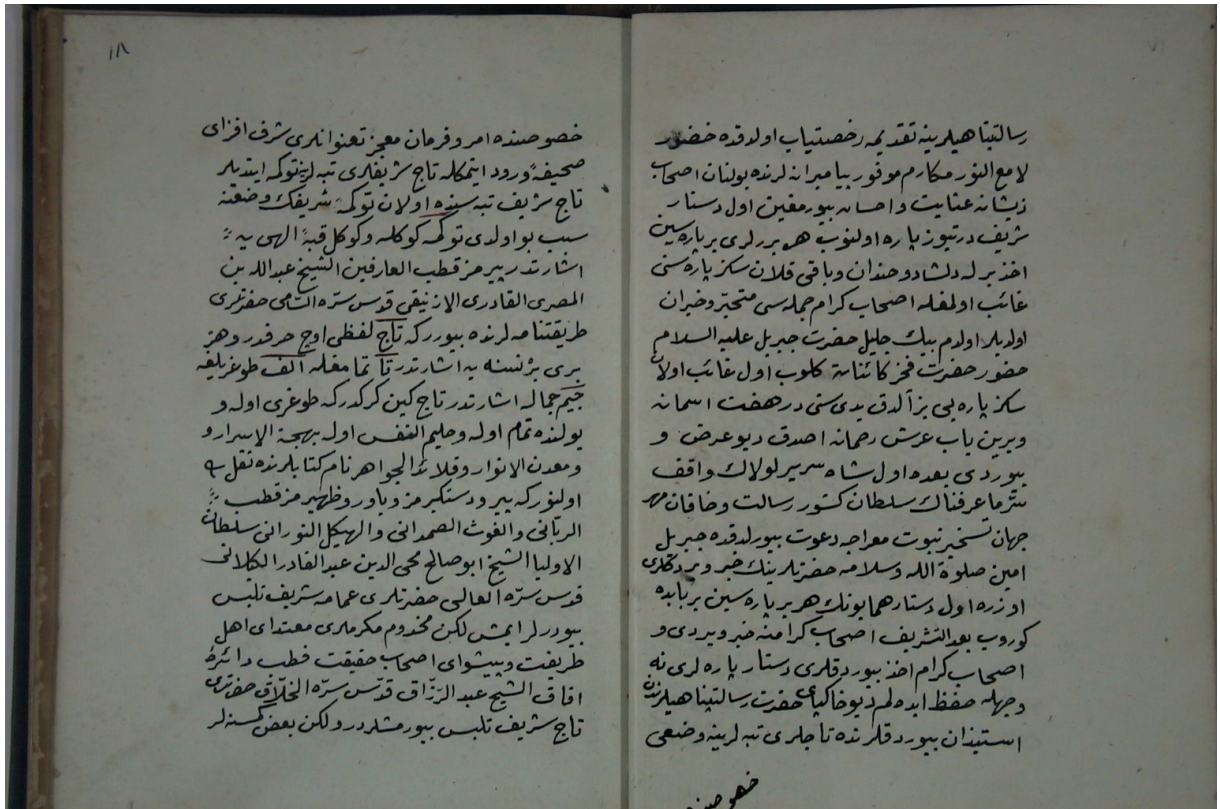 رسالتپناهیلرینه تقدیمه رخصتیاب اولدقده حضور
لامع النور مکارم موفور پیامبرانه لرنده بولنان اصحاب
ذیشانه عنایت و احسان بیورمغین اول دستار
شریف درتیوز پاره اولنوب هر بررلری بر پاره سین
اخذ برله دلشاد و خندان و باقی قلان سکز پاره سنی
غائب اولمغله اصحاب کرام جمله سی متحیر و حیران
اولدیلر اولدم پیك جلیل حضرت جبریل علیه السلام
حضور حضرت فخر کائناته کلوب اول غائب اولان
سکز پاره یی بز آلدق یدی سنی در هفت اسمان
و برین باب عرش رحمانه اصدق دیو عرض و
بیوردی بعده اول شاه سریر لولاك واقف
سر ما عرفناك سلطان کشور رسالت و خاقان مهر
جهان تسخیر نبوت معراجه دعوت بیورلدقده جبریل
امین صلوة الله و سلامه حضرتلرینك خبر ویردکلری
اوزره اول دستار همایونك هر بر پاره سین بر بابده
کوروب بعد التشریف اصحاب کرامنه خبر ویردی و
اصحاب کرام اخذ بیوردقلری دستار پاره لری نه
وجهله حفظ ایده لم دیو خاکپای حضرت رسالتپناهیلرندن
استیذان بیوردقلرنده تاجلری تپه لرینه وضعی
خصوصنده
١٨
خصوصنده امر و فرمان معجز تعنوانلری شرف افزای
صحیفهٔ ورود ایتمکله تاج شریفلری تپه لرینه توکمه ایتدیلر
تاج شریف تپه سنده اولان توکمهٔ شریفك وضعنه
سبب بو اولدی توکمه کوکله و کوکل قبهٔ الهی یه
اشارتدر پیرمز قطب العارفین الشیخ عبدالله بن
المصری القادری الازنیقی قدس سره السامی حضرتلری
طریقتنامه لرنده بیوررکه تاج لفظی اوج حرفدر و هر
بری بر نسنه یه اشارتدر تا تمامغله الف طوغریلغه
جیم جماله اشارتدر تاج کین کرکدرکه طوغری اوله و
یولنده تمام اوله و حلیم النفس اوله بهجة الاسرار و
و معدن الانوار و قلائد الجواهر نام کتابلرنده نقل
اولنورکه پیر و دستکیرمز و یاور و ظهیرمز قطب
الربانی و الغوث الصمدانی و الهیکل النورانی سلطان
الاولیا الشیخ ابو صالح محی الدین عبدالقادر الکلانی
قدس سره العالی حضرتلری عمامهٔ شریف تلبس
بیوررلر ایمش لکن مخدوم مکرملری مقتدای اهل
طریقت و پیشوای اصحاب حقیقت قطب دائرهٔ
افاق الشیخ عبدالرزاق قدس سره الخلاق حضرتلری
تاج شریف تلبس بیورمشلردر و لکن بعض کسنه لر